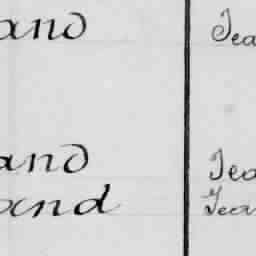 and Tea
and Tea
and Tear